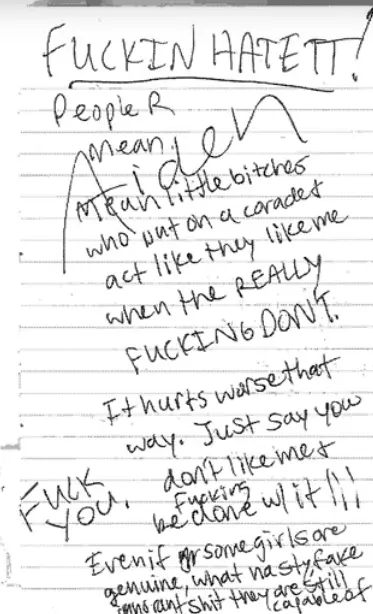 FUCKIN HATE IT!
People R
mean.
Aiden
Mean little bitches
who put on a carade &
act like they like me
when the REALLY
FUCKING DON'T.
It hurts worse that
way. Just say you
don't like me &
Fucking
be done w/ it!!!
FUCK
YOU.
Even if some girls are
genuine, what nasty, fake
ignorant shit they are still
capable of